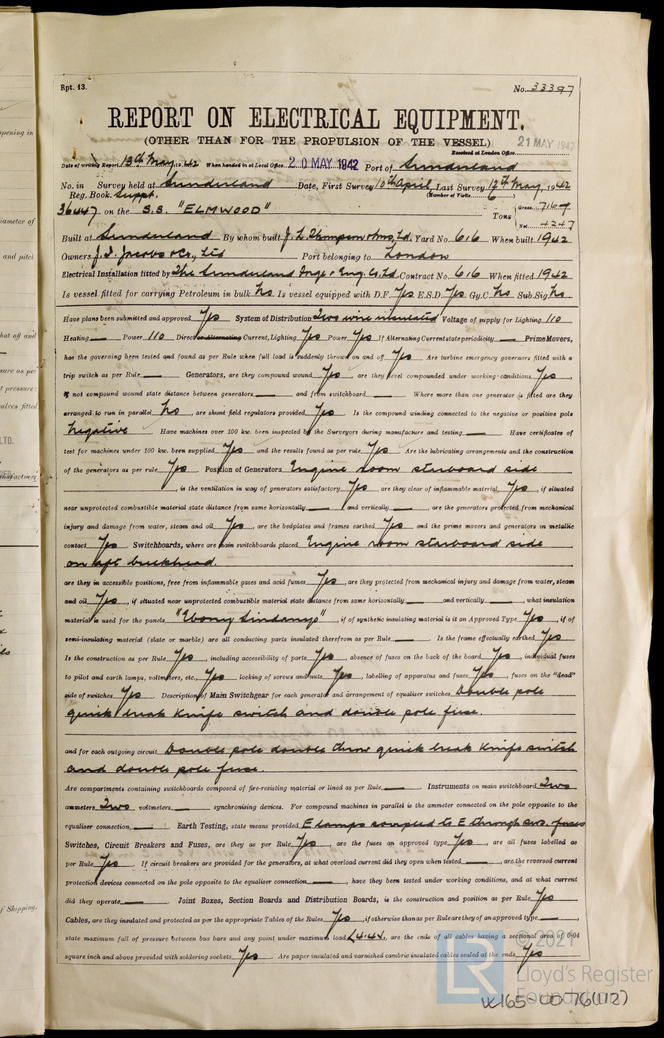 Rpt. 13.
No. 33397
REPORT ON ELECTRICAL EQUIPMENT.
(OTHER THAN FOR THE PROPULSION OF THE VESSEL)
21 MAY 1942
Received at London Office
Date of writing Report 19th May 1942 When handed in at Local Office 20 MAY 1942 Port of Sunderland
No. in Survey held at Sunderland Date, First Survey 10th April Last Survey 19th May, 1942
Reg. Book. Suppt. (Number of Visits 6)
36447 on the S.S. "ELMWOOD" Tons Gross 7167 Net 4247
Built at Sunderland By whom built J. L. Thompson & Sons, Ld. Yard No. 616 When built 1942
Owners J. I. Jacobs & Co., Ltd Port belonging to London
Electrical Installation fitted by The Sunderland Forge & Eng. Co. Ld Contract No. 616 When fitted 1942
Is vessel fitted for carrying Petroleum in bulk No Is vessel equipped with D.F. Yes E.S.D. Yes Gy.C. No Sub.Sig. No
Have plans been submitted and approved Yes System of Distribution Two wire insulated Voltage of supply for Lighting 110
Heating — Power 110 Direct or Alternating Current, Lighting Yes Power Yes If Alternating Current state periodicity — Prime Movers,
has the governing been tested and found as per Rule when full load is suddenly thrown on and off Yes Are turbine emergency governors fitted with a
trip switch as per Rule — Generators, are they compound wound Yes, are they level compounded under working conditions Yes,
if not compound wound state distance between generators — and from switchboard — Where more than one generator is fitted are they
arranged to run in parallel No, are shunt field regulators provided Yes Is the compound winding connected to the negative or positive pole
Negative Have machines over 100 kw. been inspected by the Surveyors during manufacture and testing — Have certificates of
test for machines under 100 kw. been supplied Yes and the results found as per rule Yes Are the lubricating arrangements and the construction
of the generators as per rule Yes Position of Generators Engine room starboard side
, is the ventilation in way of generators satisfactory Yes, are they clear of inflammable material Yes, if situated
near unprotected combustible material state distance from same horizontally — and vertically —, are the generators protected from mechanical
injury and damage from water, steam and oil Yes, are the bedplates and frames earthed Yes and the prime movers and generators in metallic
contact Yes Switchboards, where are main switchboards placed Engine room starboard side
on aft bulkhead.
are they in accessible positions, free from inflammable gases and acid fumes Yes, are they protected from mechanical injury and damage from water, steam
and oil Yes, if situated near unprotected combustible material state distance from same horizontally — and vertically —, what insulation
material is used for the panels "Ebony Sindanyo", if of synthetic insulating material is it an Approved Type Yes, if of
semi-insulating material (slate or marble) are all conducting parts insulated therefrom as per Rule — Is the frame effectually earthed Yes
Is the construction as per Rule Yes, including accessibility of parts Yes, absence of fuses on the back of the board Yes, individual fuses
to pilot and earth lamps, voltmeters, etc. Yes locking of screws and nuts Yes, labelling of apparatus and fuses Yes, fuses on the "dead"
side of switches Yes Description of Main Switchgear for each generator and arrangement of equaliser switches Double pole
quick break knife switch and double pole fuse.
and for each outgoing circuit Double pole double throw quick break knife switch
and double pole fuse.
Are compartments containing switchboards composed of fire-resisting material or lined as per Rule — Instruments on main switchboard Two
ammeters Two voltmeters — synchronising devices. For compound machines in parallel is the ammeter connected on the pole opposite to the
equaliser connection — Earth Testing, state means provided E lamps coupled to E through sw. fuses
Switches, Circuit Breakers and Fuses, are they as per Rule Yes are the fuses an approved type Yes, are all fuses labelled as
per Rule Yes If circuit breakers are provided for the generators, at what overload current did they open when tested —, are the reversed current
protection devices connected on the pole opposite to the equaliser connection —, have they been tested under working conditions, and at what current
did they operate — Joint Boxes, Section Boards and Distribution Boards, is the construction and position as per Rule Yes
Cables, are they insulated and protected as per the appropriate Tables of the Rules Yes, if otherwise than as per Rule are they of an approved type —,
state maximum fall of pressure between bus bars and any point under maximum load 4.4V, are the ends of all cables having a sectional area of 0.04
square inch and above provided with soldering sockets Yes Are paper insulated and varnished cambric insulated cables sealed at the ends Yes
© 2021
LR
Lloyd's Register
Foundation
W165-0076(1/2)